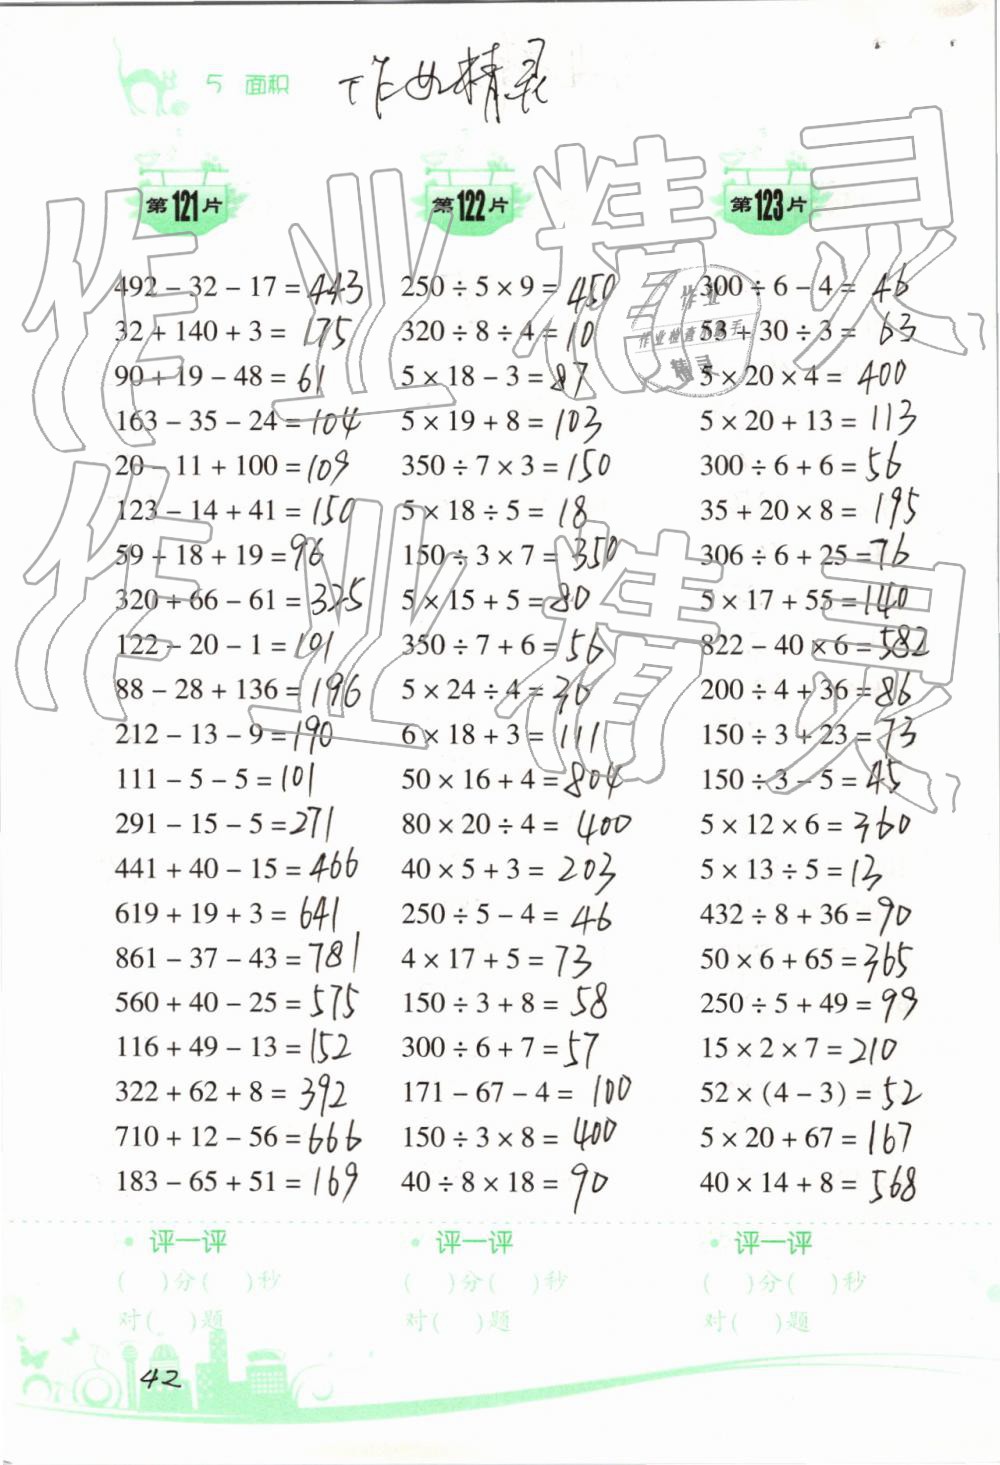 5 面积
作业精灵
第121片
492 − 32 − 17 = 443
32 + 140 + 3 = 175
90 + 19 − 48 = 61
163 − 35 − 24 = 104
20 − 11 + 100 = 109
123 − 14 + 41 = 150
59 + 18 + 19 = 96
320 + 66 − 61 = 325
122 − 20 − 1 = 101
88 − 28 + 136 = 196
212 − 13 − 9 = 190
111 − 5 − 5 = 101
291 − 15 − 5 = 271
441 + 40 − 15 = 466
619 + 19 + 3 = 641
861 − 37 − 43 = 781
560 + 40 − 25 = 575
116 + 49 − 13 = 152
322 + 62 + 8 = 392
710 + 12 − 56 = 666
183 − 65 + 51 = 169
评一评
( )分( )秒
对( )题
第122片
250 ÷ 5 × 9 = 450
320 ÷ 8 ÷ 4 = 10
5 × 18 − 3 = 87
5 × 19 + 8 = 103
350 ÷ 7 × 3 = 150
5 × 18 ÷ 5 = 18
150 ÷ 3 × 7 = 350
5 × 15 + 5 = 80
350 ÷ 7 + 6 = 56
5 × 24 ÷ 4 = 30
6 × 18 + 3 = 111
50 × 16 + 4 = 804
80 × 20 ÷ 4 = 400
40 × 5 + 3 = 203
250 ÷ 5 − 4 = 46
4 × 17 + 5 = 73
150 ÷ 3 + 8 = 58
300 ÷ 6 + 7 = 57
171 − 67 − 4 = 100
150 ÷ 3 × 8 = 400
40 ÷ 8 × 18 = 90
评一评
( )分( )秒
对( )题
第123片
300 ÷ 6 − 4 = 46
53 + 30 ÷ 3 = 63
5 × 20 × 4 = 400
5 × 20 + 13 = 113
300 ÷ 6 + 6 = 56
35 + 20 × 8 = 195
306 ÷ 6 + 25 = 76
5 × 17 + 55 = 140
822 − 40 × 6 = 582
200 ÷ 4 + 36 = 86
150 ÷ 3 + 23 = 73
150 ÷ 3 − 5 = 45
5 × 12 × 6 = 360
5 × 13 ÷ 5 = 13
432 ÷ 8 + 36 = 90
50 × 6 + 65 = 365
250 ÷ 5 + 49 = 99
15 × 2 × 7 = 210
52 × (4 − 3) = 52
5 × 20 + 67 = 167
40 × 14 + 8 = 568
评一评
( )分( )秒
对( )题
42
作业精灵
作业精灵
作业
精灵